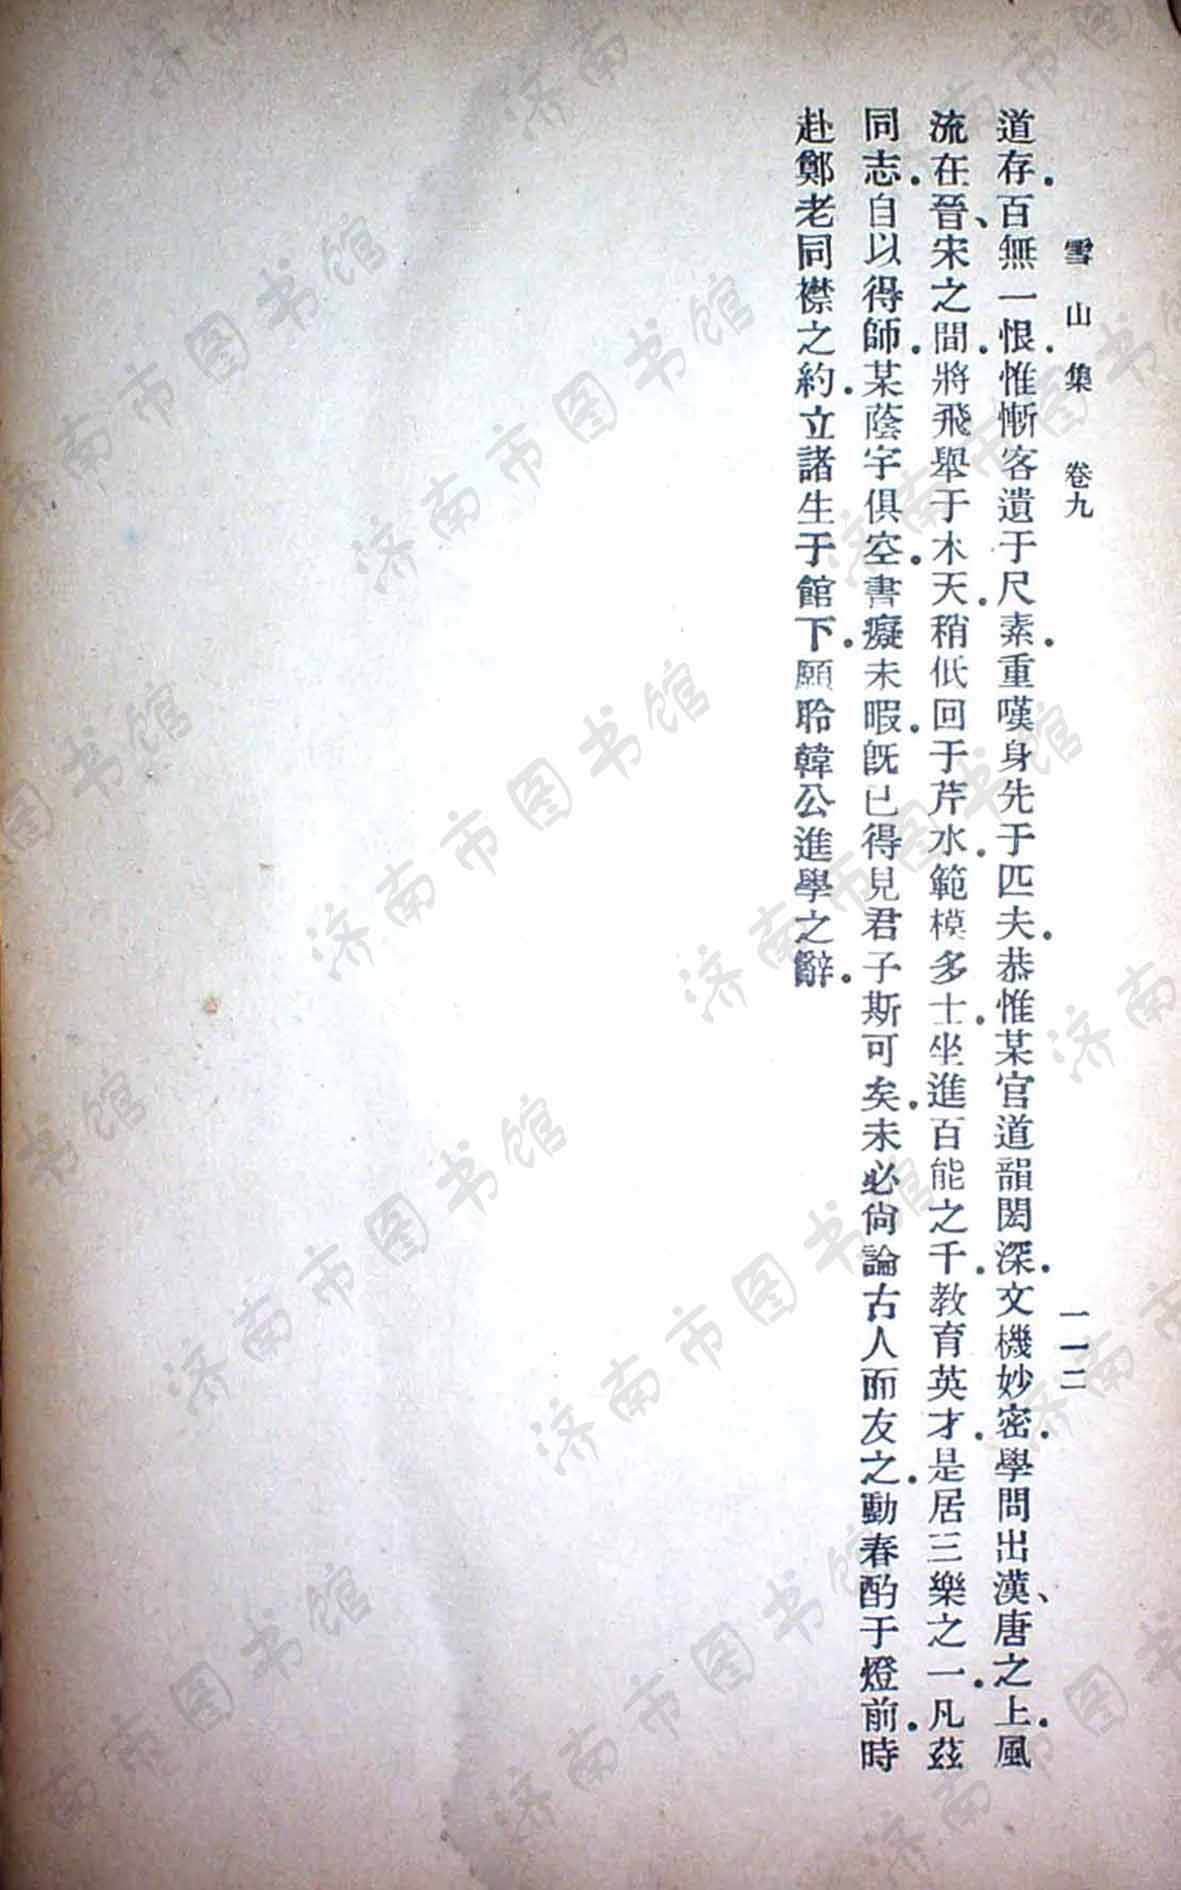 雪山集 卷九 一一二
道存．百無一恨．惟慚客遺于尺素．重嘆身先于匹夫．恭惟某官道韻閎深．文機妙密．學問出漢、唐之上．風
流在晉、宋之間．將飛舉于木天．稍低回于芹水．範模多士．坐進百能之千．教育英才．是居三樂之一．凡茲
同志．自以得師．某蔭宇俱空．書癡未暇．旣已得見君子斯可矣．未必尙論古人而友之．動春酌于燈前．時
赴鄭老同襟之約．立諸生于館下．願聆韓公進學之辭．
济南市图书馆